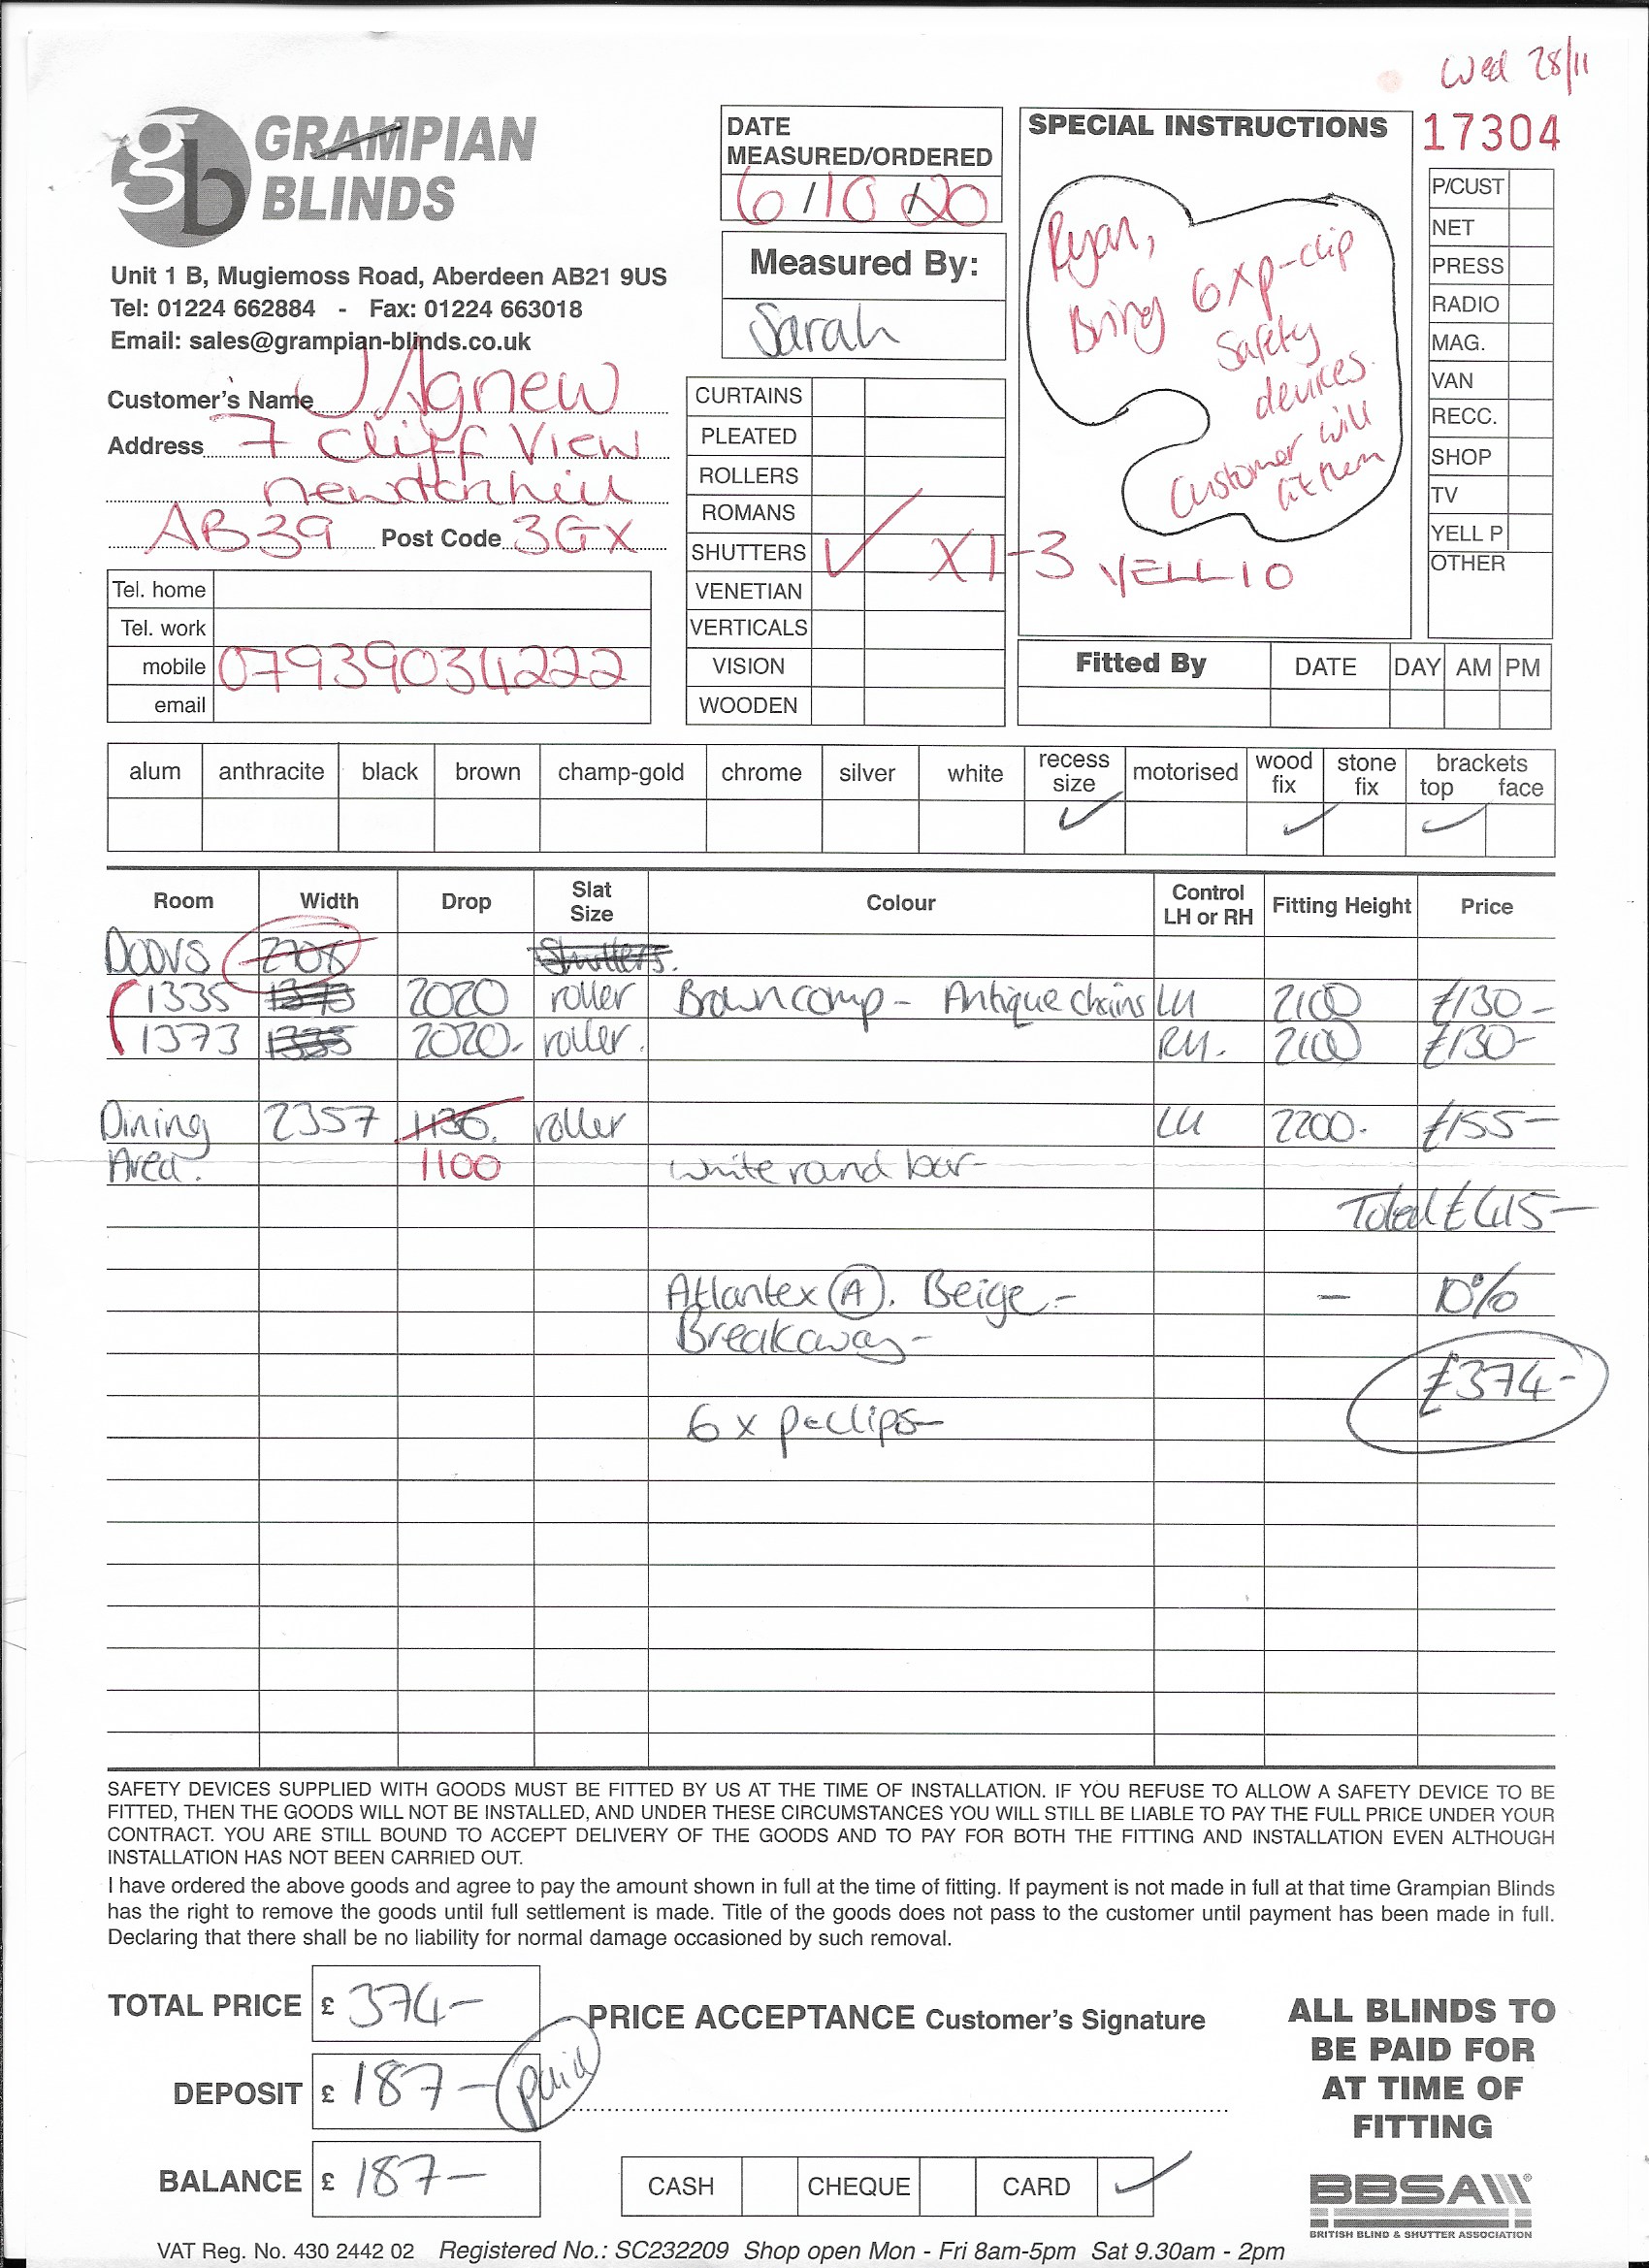 Wed 28/11
GRAMPIAN
BLINDS
gb
Unit 1 B, Mugiemoss Road, Aberdeen AB21 9US
Tel: 01224 662884 - Fax: 01224 663018
Email: sales@grampian-blinds.co.uk
Customer's Name J Agnew
Address 7 Cliff View
Newtonhill
AB39 Post Code 3GX
Tel. home
Tel. work
mobile 07939034222
email
DATE
MEASURED/ORDERED
6/10/20
Measured By:
Sarah
CURTAINS
PLEATED
ROLLERS
ROMANS
SHUTTERS ✓ X1-3
VENETIAN
VERTICALS
VISION
WOODEN
SPECIAL INSTRUCTIONS
Ryan,
Bring 6xp-clip
Safety
devices.
Customer will
fit them
YELL10
17304
P/CUST
NET
PRESS
RADIO
MAG.
VAN
RECC.
SHOP
TV
YELL P
OTHER
Fitted By DATE DAY AM PM
alum anthracite black brown champ-gold chrome silver white recess size motorised wood fix stone fix brackets top face
✓ ✓ ✓
Room Width Drop Slat Size Colour Control LH or RH Fitting Height Price
Doors 2708 Shutters.
1335 1373 2020 roller Browncomp - Antique chains LH 2100 £130-
1373 1335 2020. roller. RH. 2100 £130-
Dining 2357 1136. roller LH 2200. £155-
Area. 1100 white round bar-
Total £415-
Atlantex (A). Beige.- - 10%
Breakaway-
£374-
6 x p-clips-
SAFETY DEVICES SUPPLIED WITH GOODS MUST BE FITTED BY US AT THE TIME OF INSTALLATION. IF YOU REFUSE TO ALLOW A SAFETY DEVICE TO BE
FITTED, THEN THE GOODS WILL NOT BE INSTALLED, AND UNDER THESE CIRCUMSTANCES YOU WILL STILL BE LIABLE TO PAY THE FULL PRICE UNDER YOUR
CONTRACT. YOU ARE STILL BOUND TO ACCEPT DELIVERY OF THE GOODS AND TO PAY FOR BOTH THE FITTING AND INSTALLATION EVEN ALTHOUGH
INSTALLATION HAS NOT BEEN CARRIED OUT.
I have ordered the above goods and agree to pay the amount shown in full at the time of fitting. If payment is not made in full at that time Grampian Blinds
has the right to remove the goods until full settlement is made. Title of the goods does not pass to the customer until payment has been made in full.
Declaring that there shall be no liability for normal damage occasioned by such removal.
TOTAL PRICE £ 374-
DEPOSIT £ 187- paid
BALANCE £ 187-
PRICE ACCEPTANCE Customer's Signature
CASH CHEQUE CARD ✓
ALL BLINDS TO
BE PAID FOR
AT TIME OF
FITTING
BBSA
BRITISH BLIND & SHUTTER ASSOCIATION
VAT Reg. No. 430 2442 02 Registered No.: SC232209 Shop open Mon - Fri 8am-5pm Sat 9.30am - 2pm